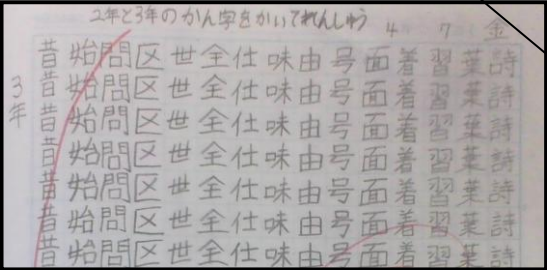 2年と3年のかん字をかいてれんしゅう 4 7 金
3年
昔始問区世全仕味由号面着習葉詩
昔始問区世全仕味由号面着習葉詩
昔始問区世全仕味由号面着習葉詩
昔始問区世全仕味由号面着習葉詩
昔始問区世全仕味由号面着習葉詩
昔始問区世全仕味由号面着習葉詩
昔始問区世全仕味由号面着習葉詩